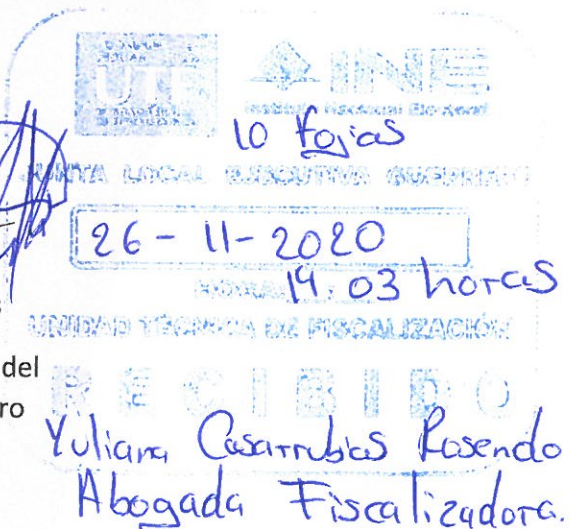 UTF
INE
Instituto Nacional Electoral
10 fojas
JUNTA LOCAL EJECUTIVA GUERRERO
26 - 11 - 2020
14. 03 horas
UNIDAD TÉCNICA DE FISCALIZACIÓN
del
RECIBIDO
ro
Yuliana Casarrubias Rosendo
Abogada Fiscalizadora.